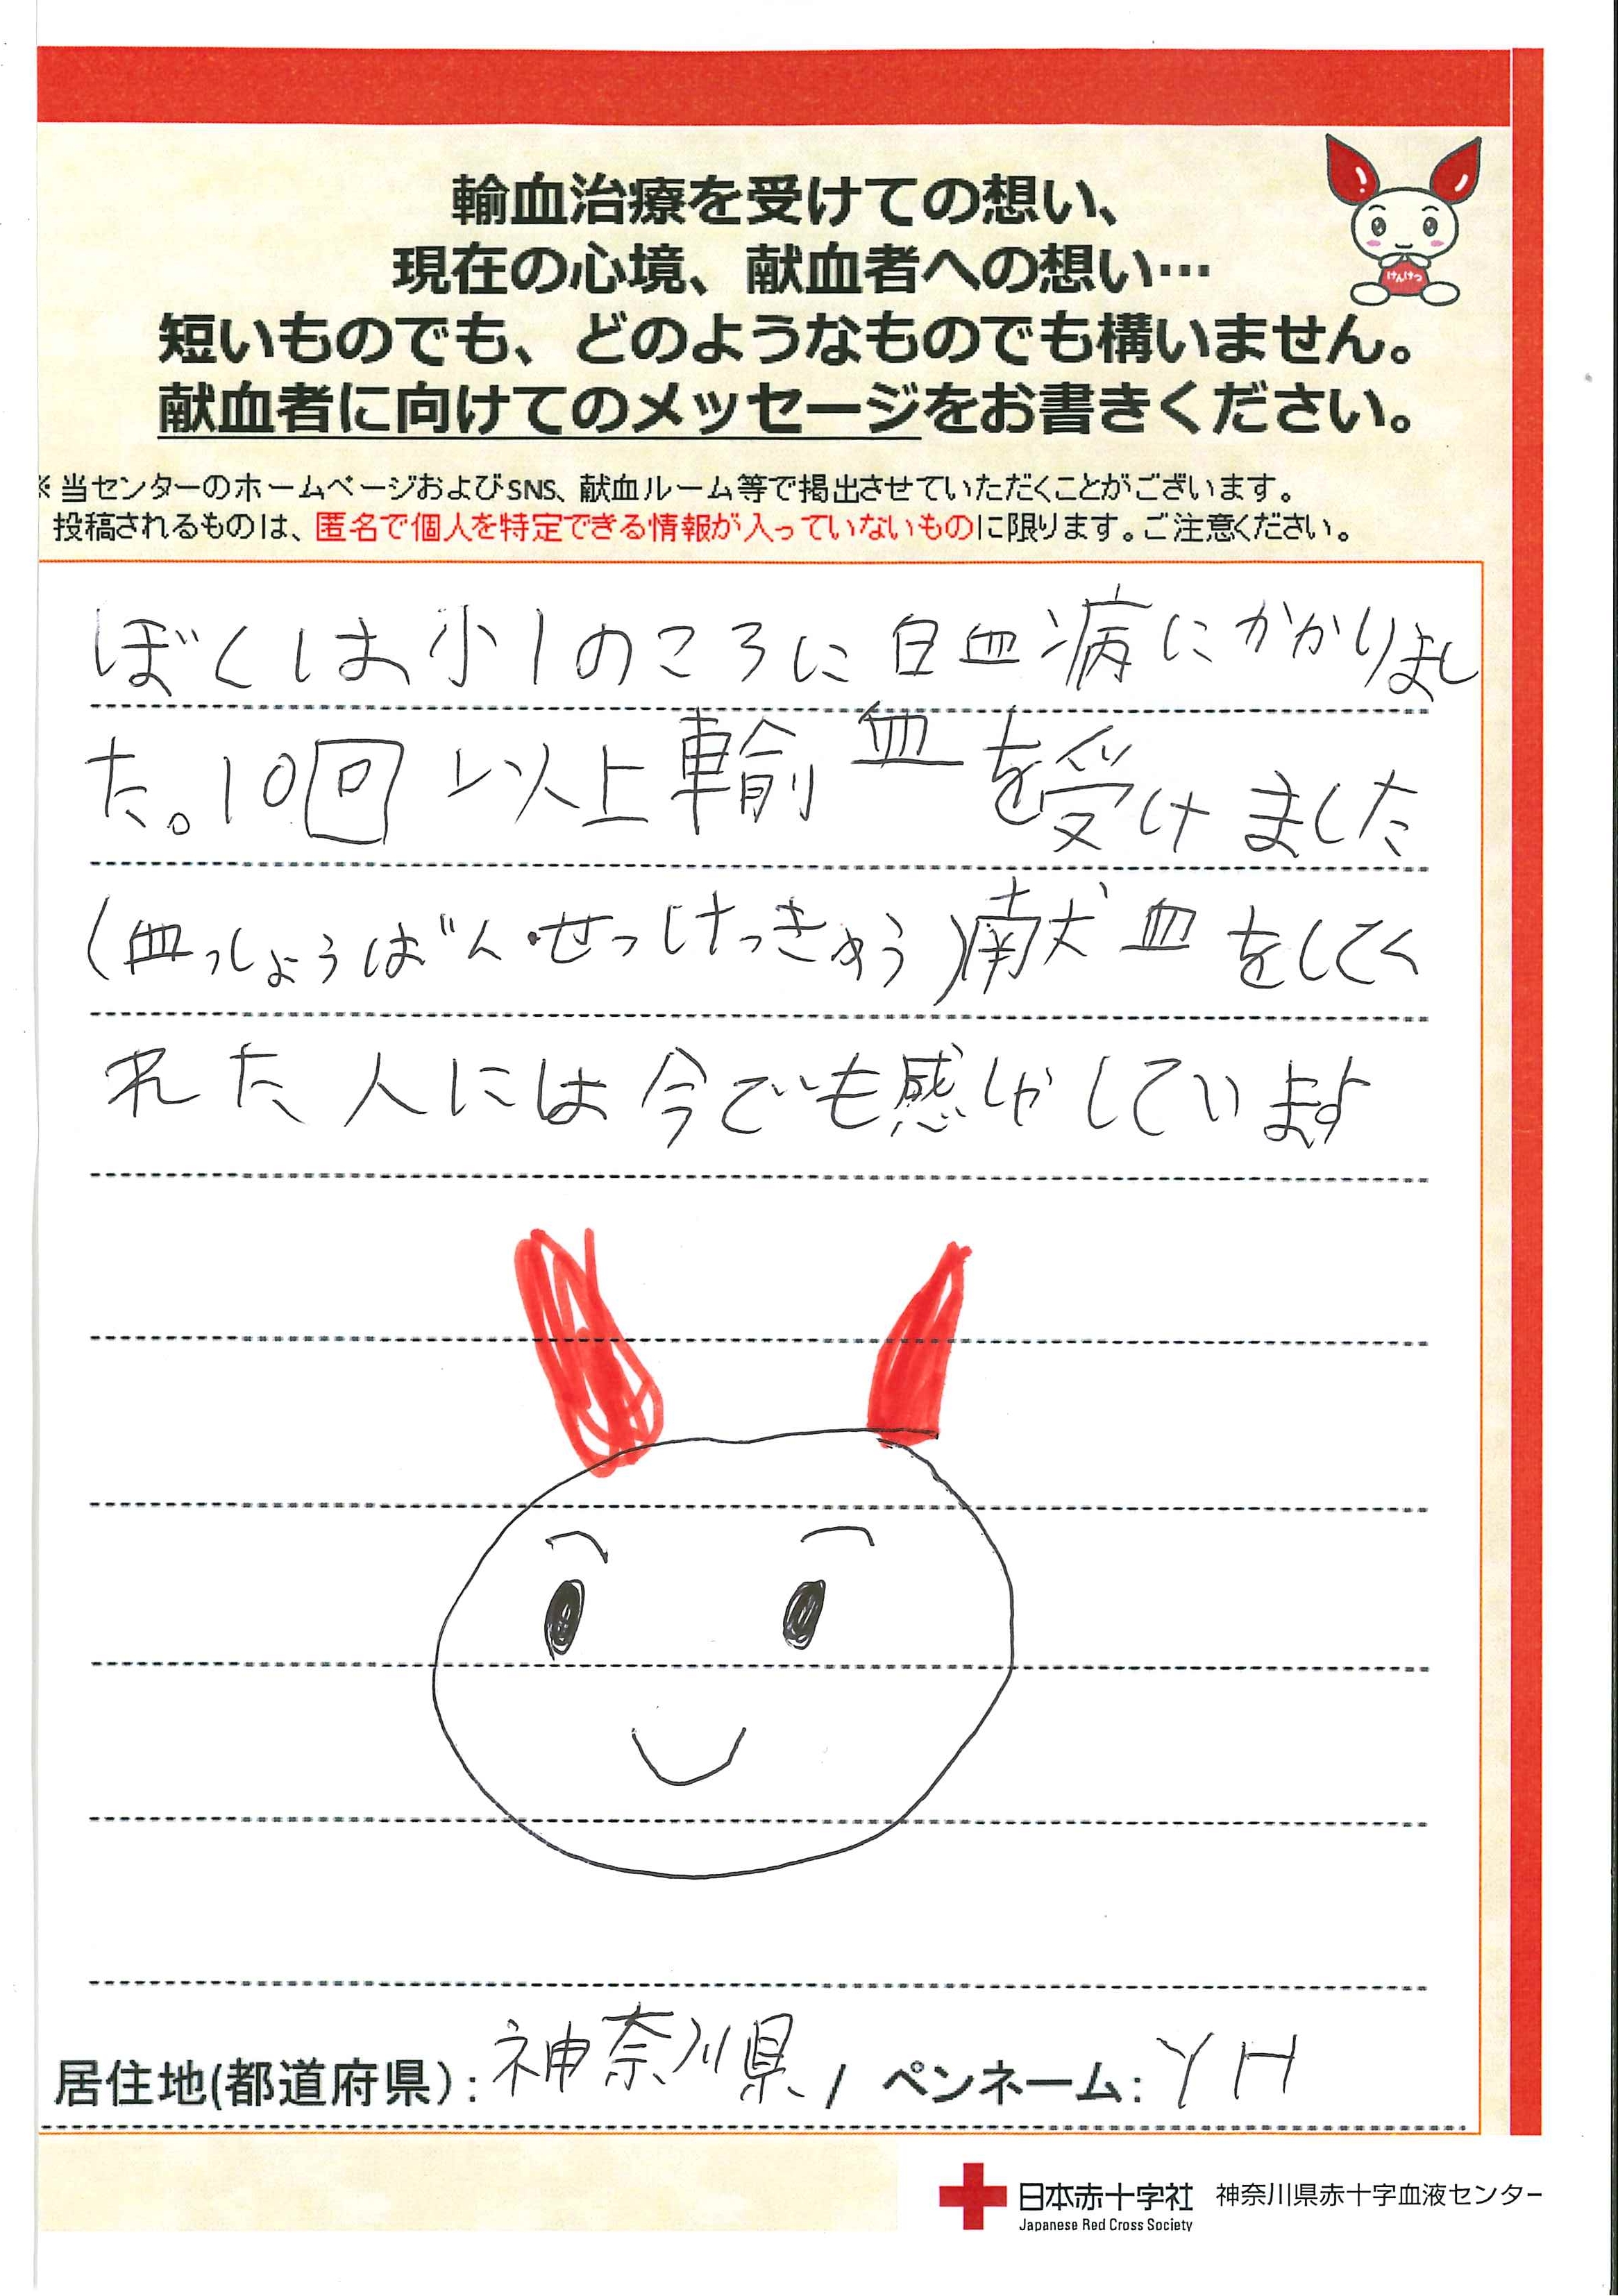 輸血治療を受けての想い、
現在の心境、献血者への想い…
短いものでも、どのようなものでも構いません。
献血者に向けてのメッセージをお書きください。
けんけつ
※当センターのホームページおよびSNS、献血ルーム等で掲出させていただくことがございます。
投稿されるものは、匿名で個人を特定できる情報が入っていないものに限ります。ご注意ください。
ぼくは小1のころに白血病にかかりまし
た。10回以上輸血を受けました
(血っしょうばん・せっけっきゅう)献血をしてく
れた人には今でも感しゃしています
居住地(都道府県):神奈川県/ ペンネーム:YH
日本赤十字社 神奈川県赤十字血液センター
Japanese Red Cross Society